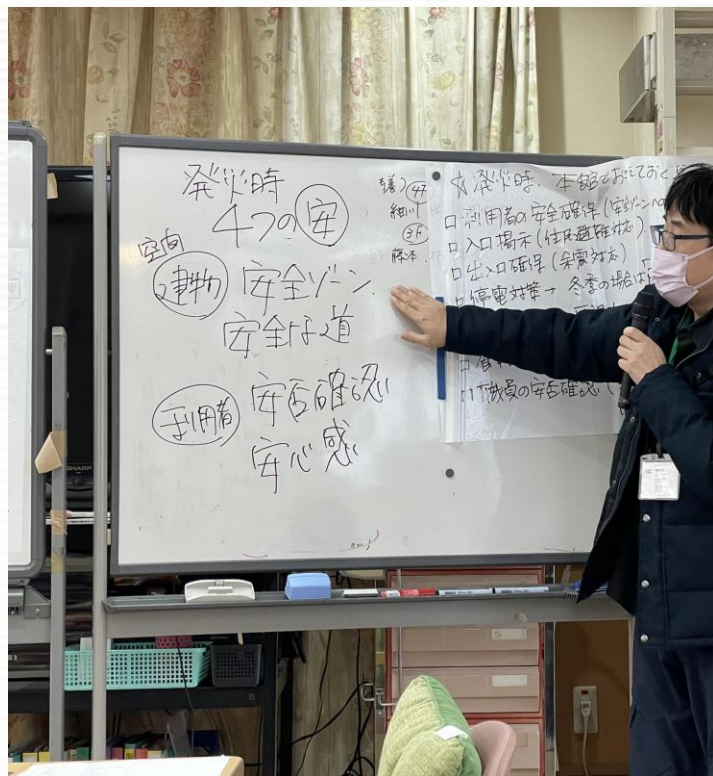 発災時
4つの安
空間
建物
安全ゾーン
安全な道
利用者
安否確認
安心感
47
細川
藤本
☆発災時、本館でおさえておく
□利用者の安全確保(安全ゾーンへの
□入口掲示(住民避難対応)
□出入口確保(余震対応)
□停電対策→冬季の場合は
□職員の安否確認(
SHARP